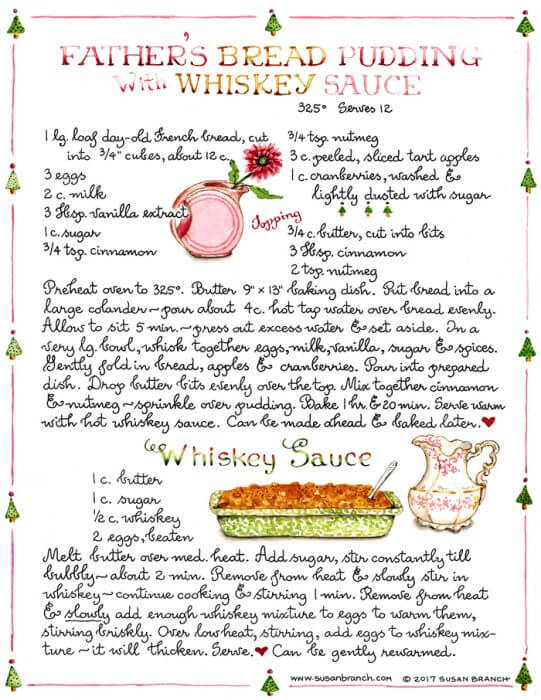 FATHER'S BREAD PUDDING
With WHISKEY SAUCE
325° Serves 12
1 lg. loaf day-old French bread, cut
into 3/4" cubes, about 12 c.
3 eggs
2 c. milk
3 tbsp. vanilla extract
1 c. sugar
3/4 tsp. cinnamon
3/4 tsp. nutmeg
3 c. peeled, sliced tart apples
1 c. cranberries, washed &
lightly dusted with sugar
Topping
3/4 c. butter, cut into bits
3 tbsp. cinnamon
2 tsp. nutmeg
Preheat oven to 325°. Butter 9" x 13" baking dish. Put bread into a
large colander ~ pour about 4 c. hot tap water over bread evenly.
Allow to sit 5 min. ~ press out excess water & set aside. In a
very lg. bowl, whisk together eggs, milk, vanilla, sugar & spices.
Gently fold in bread, apples & cranberries. Pour into prepared
dish. Drop butter bits evenly over the top. Mix together cinnamon
& nutmeg ~ sprinkle over pudding. Bake 1 hr. & 20 min. Serve warm
with hot whiskey sauce. Can be made ahead & baked later. ♥
Whiskey Sauce
1 c. butter
1 c. sugar
1/2 c. whiskey
2 eggs, beaten
Melt butter over med. heat. Add sugar, stir constantly till
bubbly ~ about 2 min. Remove from heat & slowly stir in
whiskey ~ continue cooking & stirring 1 min. Remove from heat
& slowly add enough whiskey mixture to eggs to warm them,
stirring briskly. Over low heat, stirring, add eggs to whiskey mix-
ture ~ it will thicken. Serve. ♥ Can be gently rewarmed.
www.susanbranch.com © 2017 SUSAN BRANCH